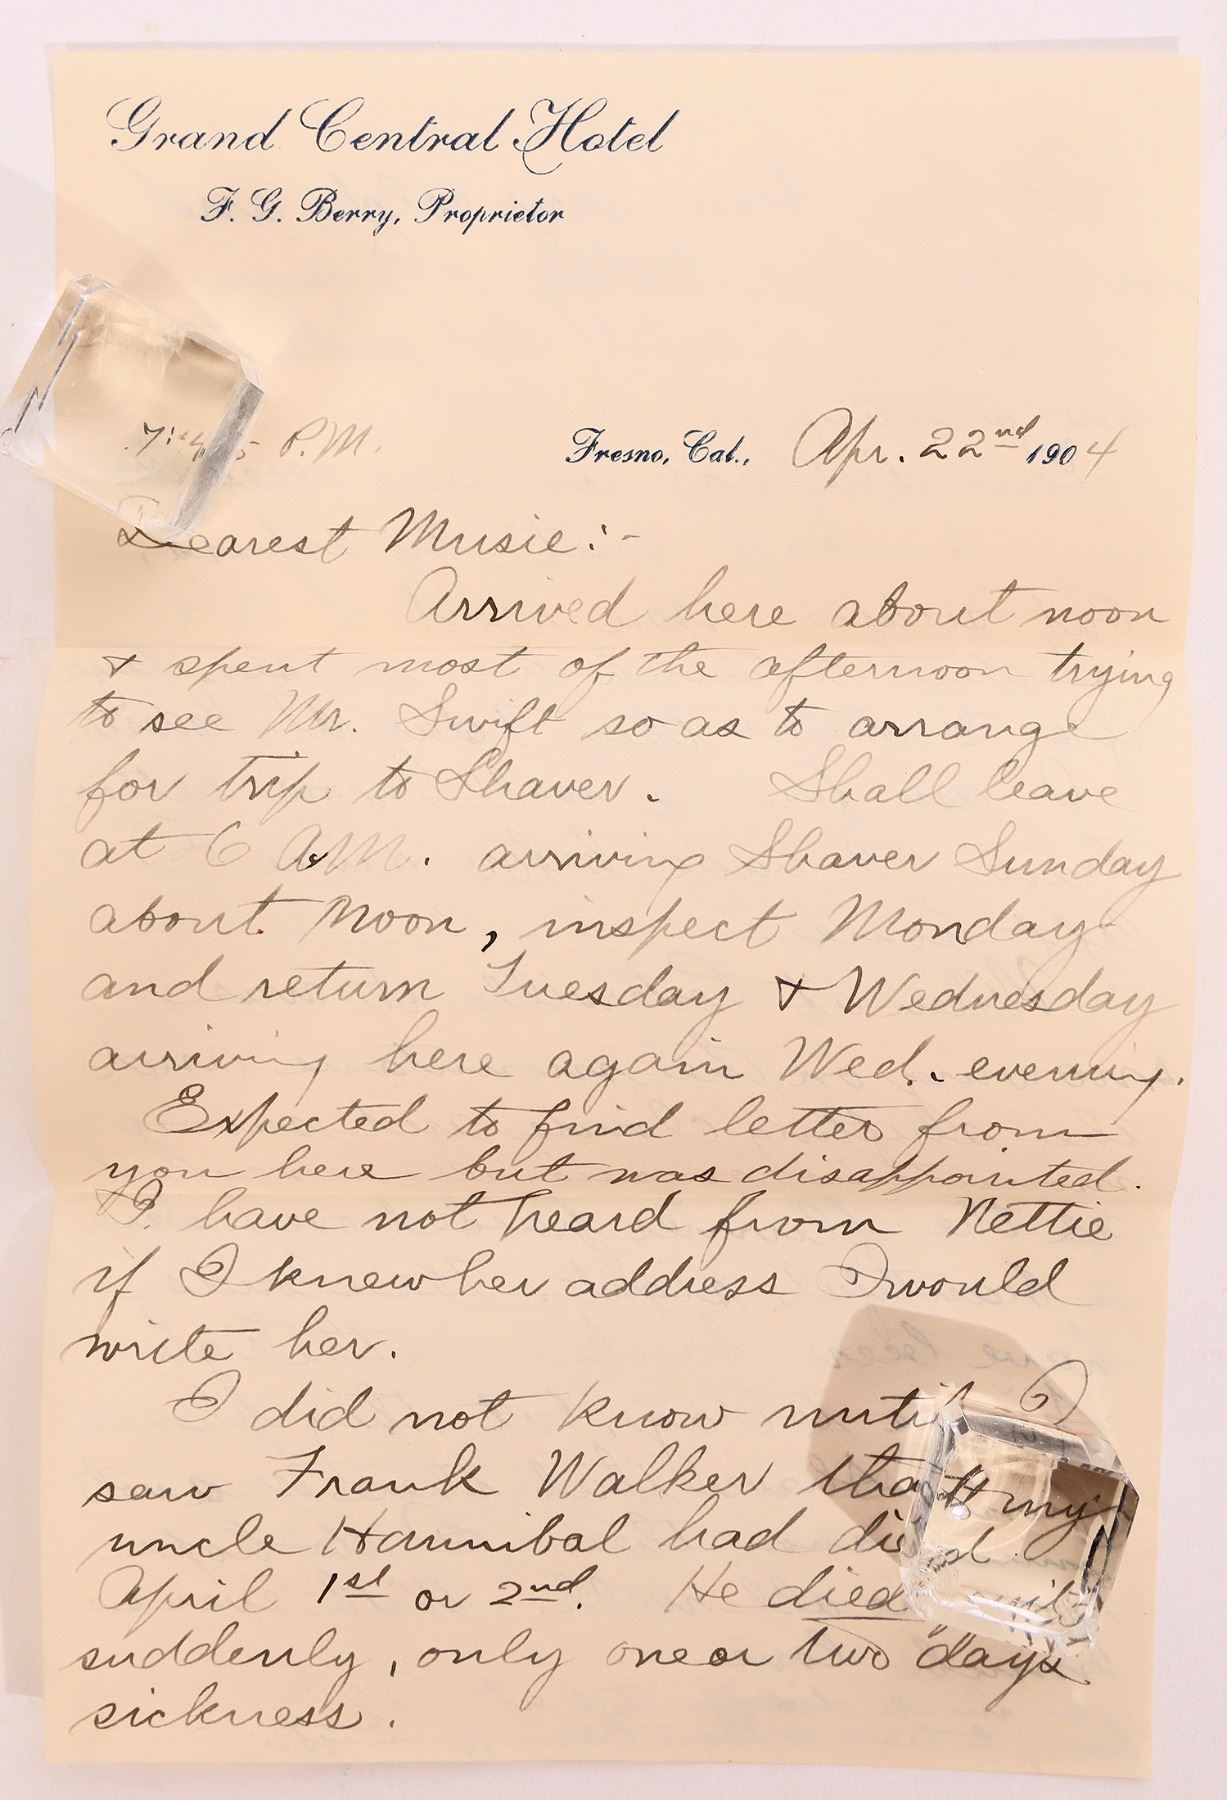 Grand Central Hotel
F. G. Berry, Proprietor
P.M.
Fresno, Cal., Apr. 22nd 1904
Dearest Musie:-
Arrived here about noon
& spent most of the afternoon trying
to see Mr. Swift so as to arrange
for trip to Shaver. Shall leave
at 6 A.M. arriving Shaver Sunday
about noon, inspect Monday
and return Tuesday & Wednesday
arriving here again Wed. evening.
Expected to find letter from
you here but was disappointed.
I have not heard from Nettie
if I knew her address I would
write her.
I did not know until I
saw Frank Walker that my
uncle Hannibal had died
April 1st or 2nd. He died quite
suddenly, only one or two days
sickness.